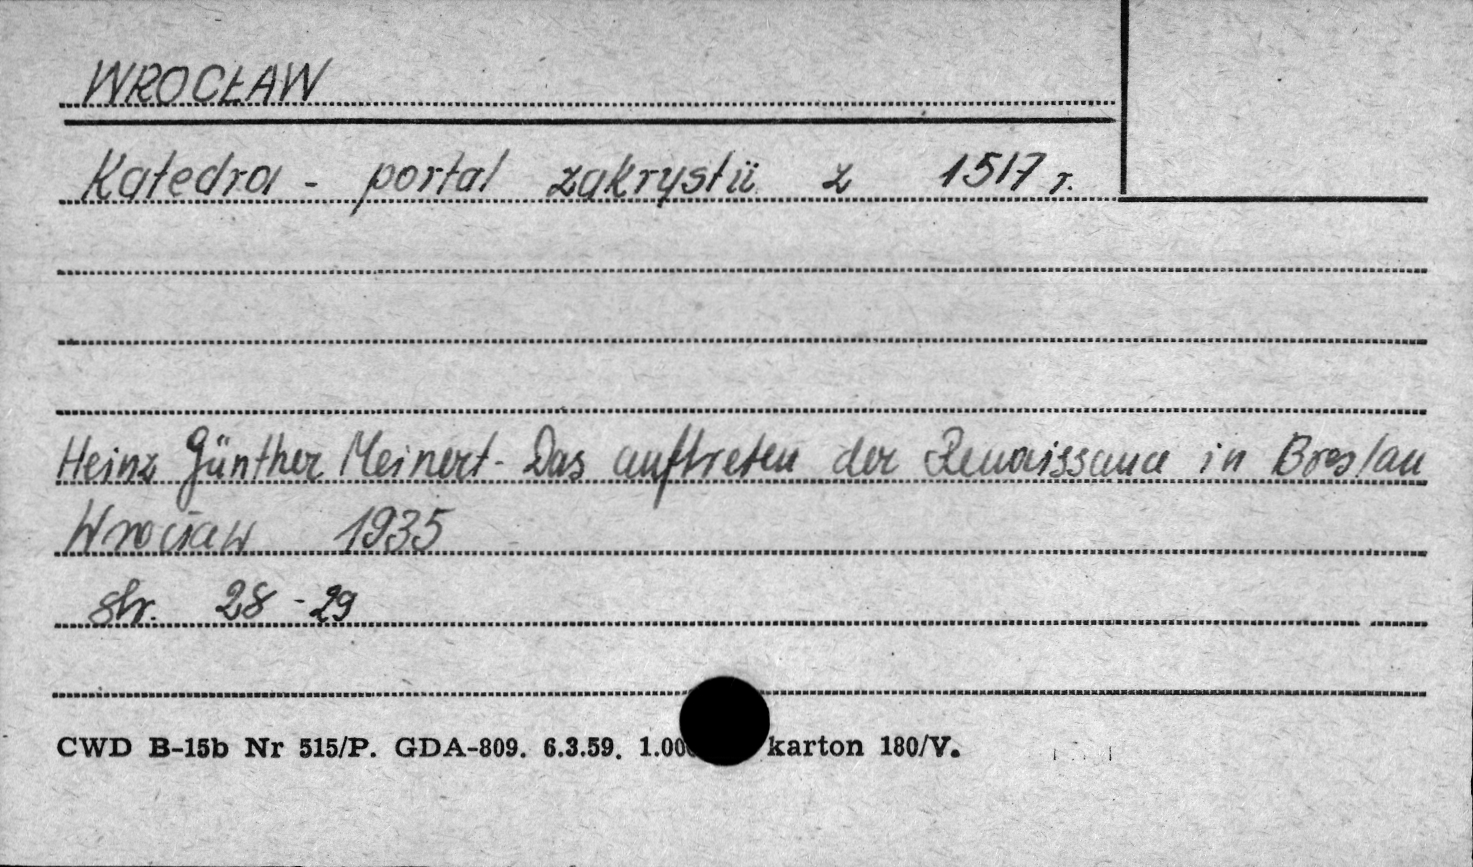 WROCŁAW
Katedra - portal zakrystii z 1517 r.
Heinz Günther Meinert - Das auftreten der Renaissance in Breslau
Wrocław 1935
str. 28-29
CWD B-15b Nr 515/P. GDA-809. 6.3.59. karton 180/V.